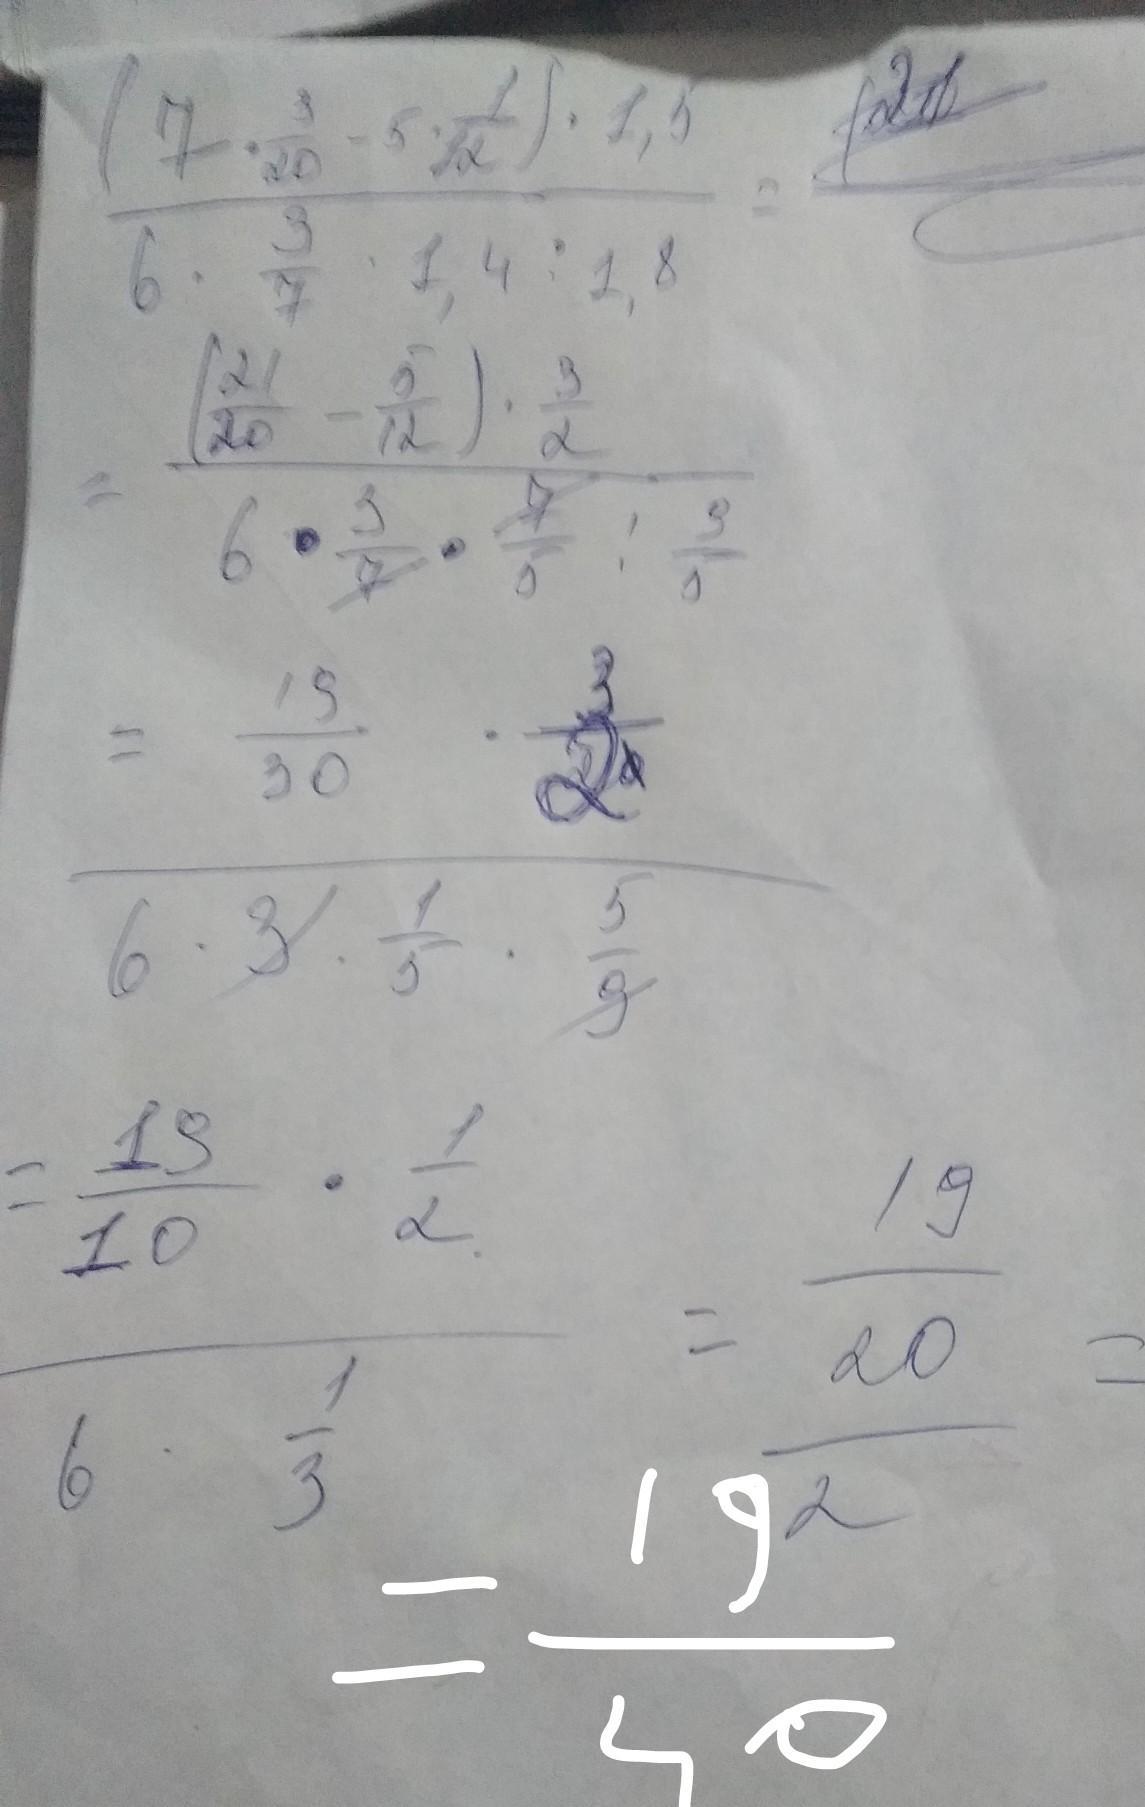 (7 · 3/20 - 5 · 1/12) · 1,5 / 6 · 3/7 · 1,4 : 1,8 =
= (21/20 - 5/12) · 3/2 / 6 · 3/7 · 7/5 : 9/5
= 19/30 · 3/2 / 6 · 3 · 1/5 · 5/9
= 19/10 · 1/2 / 6 · 1/3 = 19/20 / 2 =
= 19/40